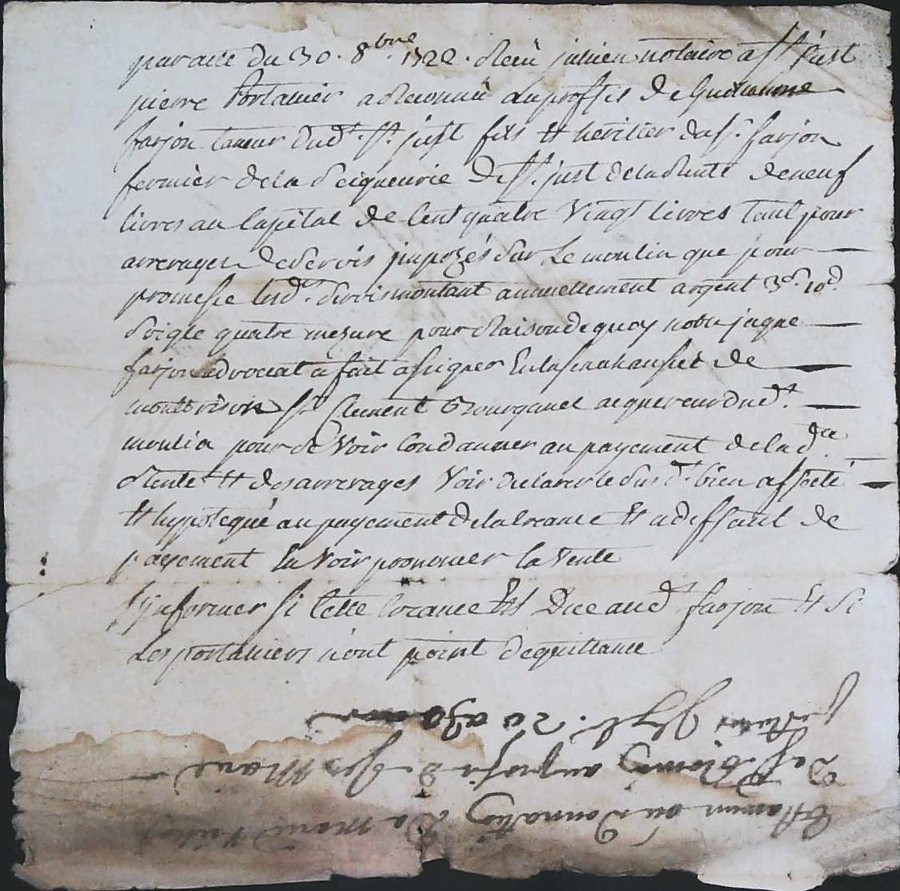 par acte du 30. 8bre 1722. Receu jullien notaire a St just
pierre Portanier a Reconnu au proffit de Guillaume
farjon taneur dudt. St. just fils et heritier du Sr. farjon
fermier de la Seigneurie de St. just de la Rente de neuf
livres au Capital de Cent quatre vingt livres tant pour
arrerages de servis imposés sur Le moulin que pour
promesse lesds. servis montant annuellement argent 3s. 10d.
Soigle quatre mesure pour Raison de quoy notre jaque
farjon advocat a fait assigner En la senehaussée de
montbrison Sr. Clement acquereur dudt.
moulin pour se Voir Condanner au payement de la de.
Rente et des arrerages Voir declarer le susdt. bien affecté
et hypotequé au payement de la Creance Et a deffaut de
payement En Voir prononcer la Vente
S'informer si Cette Creance Est Due audt. farjon Et si
Les portaniers n'ont point de quittance
donnation
au profit de